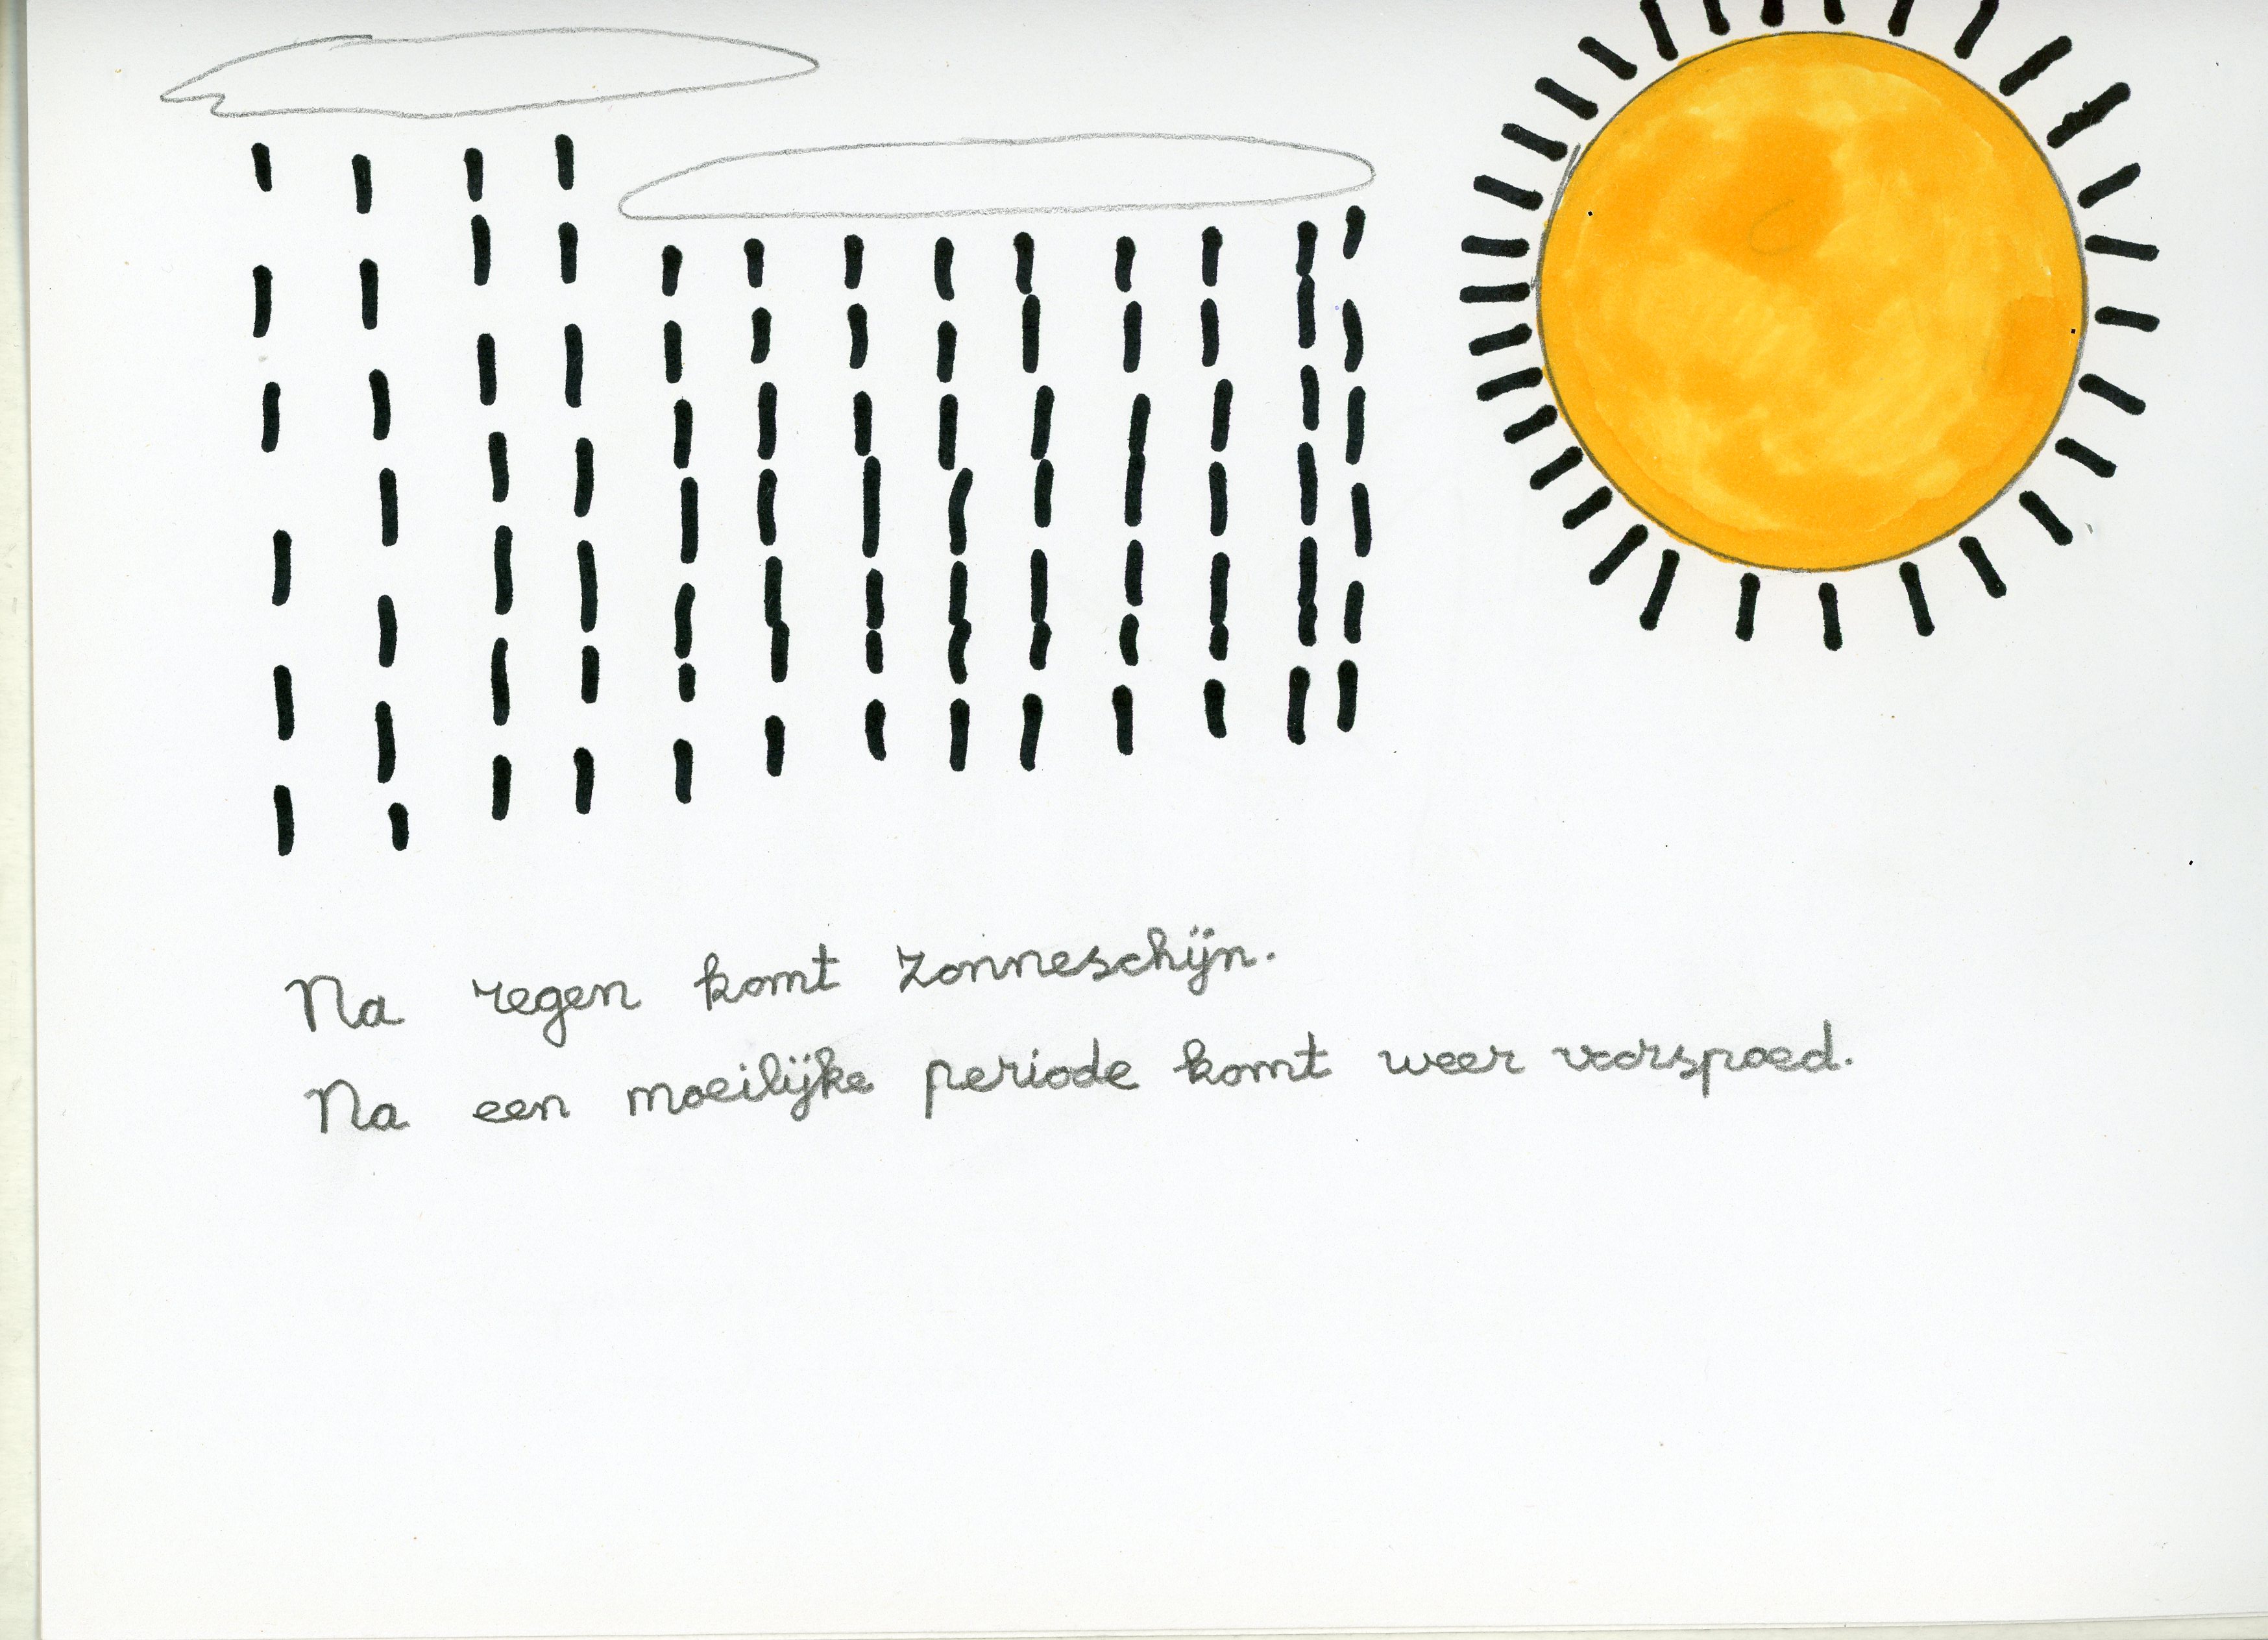 Na regen komt zonneschijn.
Na een moeilijke periode komt weer voorspoed.